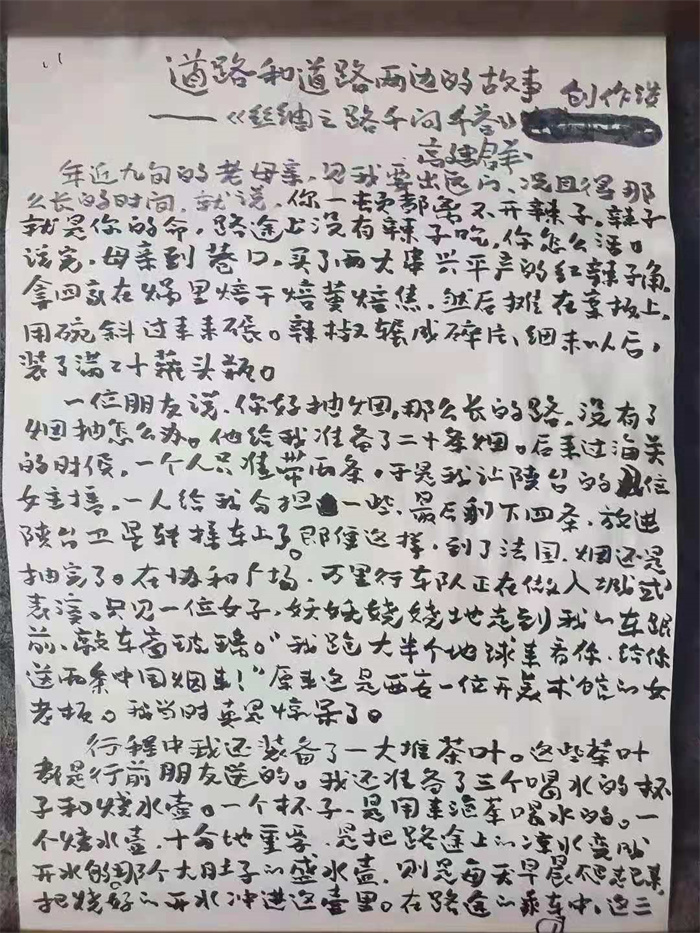 道路和道路两边的故事
创作谈
——《丝绸之路千问千答》
高建群
年近九旬的老母亲,见我要出远门、况且得那
么长的时间,就说,你一顿都离不开辣子。辣子
就是你的命,路途上没有辣子吃,你怎么活。
说完,母亲到巷口,买了两大串兴平产的红辣子角。
拿回家在锅里焙干焙黄焙焦,然后摊在案板上,
用碗斜过来来碾。辣椒碾成碎片、细末以后,
装了满二十罐头瓶。
一位朋友说,你好抽烟,那么长的路,没有了
烟抽怎么办。他给我准备了二十条烟。后来过海关
的时候,一个人只准带两条,于是我让陕台的几位
女主播,一人给我分担一些,最后剩下四条,放进
陕台卫星转播车上了。即使这样,到了法国,烟还是
抽完了。在协和广场,万里行车队正在做入城式
表演。只见一位女子,妖妖娆娆地走到我的车跟
前,敲车窗玻璃。“我跑大半个地球来看你,给你
送两条中国烟来!”原来这是西安一位开美术馆的女
老板。我当时真是惊呆了。
行程中我还装备了一大堆茶叶。这些茶叶
都是行前朋友送的。我还准备了三个喝水的杯
子和烧水壶。一个杯子,是用来泡茶喝水的。一
个烧水壶,十分地重要,是把路途上的凉水变成
开水的。那个大肚子的盛水壶,则是每天早晨不忘记
把烧好的开水冲进这壶里。在路途的乘车中,这三
1